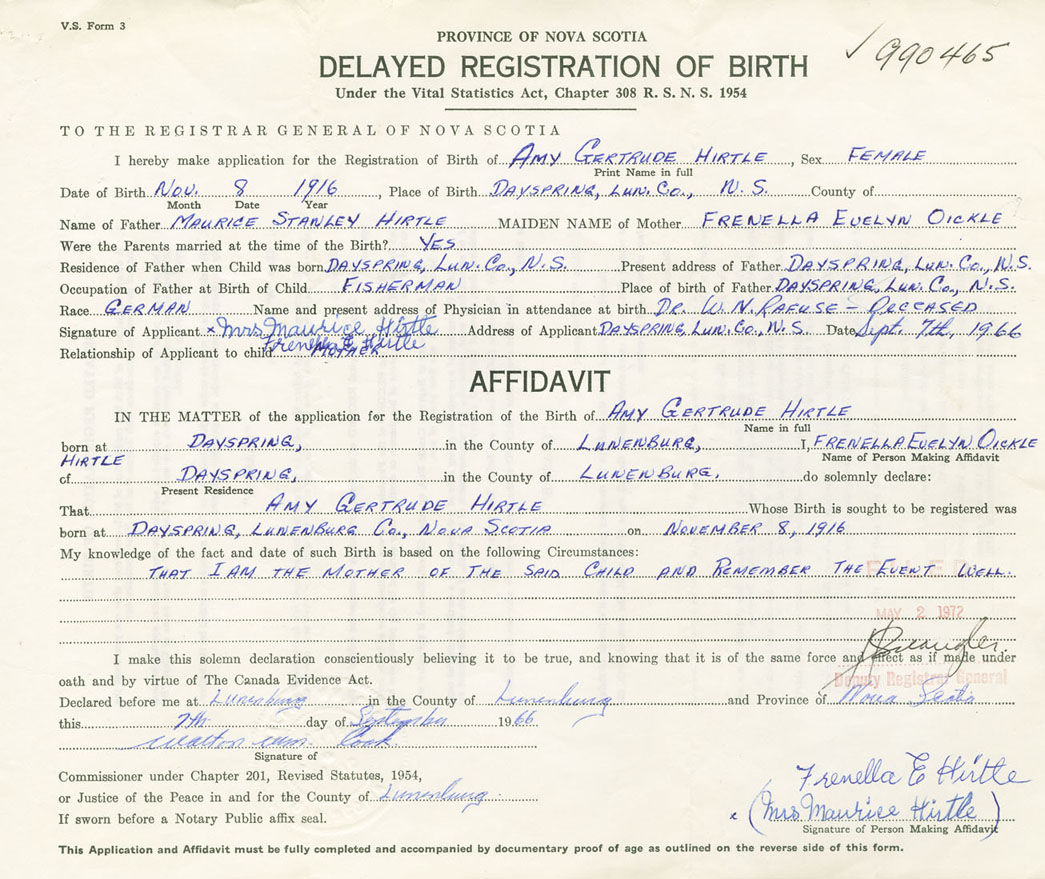 V.S. Form 3
PROVINCE OF NOVA SCOTIA
✓ 990465
DELAYED REGISTRATION OF BIRTH
Under the Vital Statistics Act, Chapter 308 R. S. N. S. 1954
TO THE REGISTRAR GENERAL OF NOVA SCOTIA
I hereby make application for the Registration of Birth of AMY GERTRUDE HIRTLE, Sex FEMALE
Print Name in full
Date of Birth NOV. 8 1916, Place of Birth DAYSPRING, LUN. CO., N. S. County of
Month Date Year
Name of Father MAURICE STANLEY HIRTLE MAIDEN NAME of Mother FRENELLA EVELYN OICKLE
Were the Parents married at the time of the Birth? YES
Residence of Father when Child was born DAYSPRING, LUN. CO., N.S. Present address of Father DAYSPRING, LUN. CO., N.S.
Occupation of Father at Birth of Child FISHERMAN Place of birth of Father DAYSPRING, LUN. CO., N.S.
Race GERMAN Name and present address of Physician in attendance at birth DR. W. N. RAFUSE - DECEASED
Signature of Applicant × Mrs Maurice Hirtle Address of Applicant DAYSPRING, LUN. CO. N. S. Date Sept. 7th, 1966
Frenella E Hirtle
Relationship of Applicant to child MOTHER
AFFIDAVIT
IN THE MATTER of the application for the Registration of the Birth of AMY GERTRUDE HIRTLE
Name in full
born at DAYSPRING, in the County of LUNENBURG, I, FRENELLA EVELYN OICKLE
HIRTLE Name of Person Making Affidavit
of DAYSPRING, in the County of LUNENBURG. do solemnly declare:
Present Residence
That AMY GERTRUDE HIRTLE Whose Birth is sought to be registered was
born at DAYSPRING, LUNENBURG CO., NOVA SCOTIA on NOVEMBER 8, 1916
My knowledge of the fact and date of such Birth is based on the following Circumstances:
THAT I AM THE MOTHER OF THE SAID CHILD AND REMEMBER THE EVENT WELL.
MAY 2 1972
I make this solemn declaration conscientiously believing it to be true, and knowing that it is of the same force and effect as if made under
oath and by virtue of The Canada Evidence Act.
Deputy Registrar General
Declared before me at Lunenburg in the County of Lunenburg and Province of Nova Scotia
this 7th day of September 1966
Walton Wm. Cook
Signature of
Commissioner under Chapter 201, Revised Statutes, 1954,
or Justice of the Peace in and for the County of Lunenburg
If sworn before a Notary Public affix seal.
Frenella E Hirtle
× (Mrs Maurice Hirtle)
Signature of Person Making Affidavit
This Application and Affidavit must be fully completed and accompanied by documentary proof of age as outlined on the reverse side of this form.